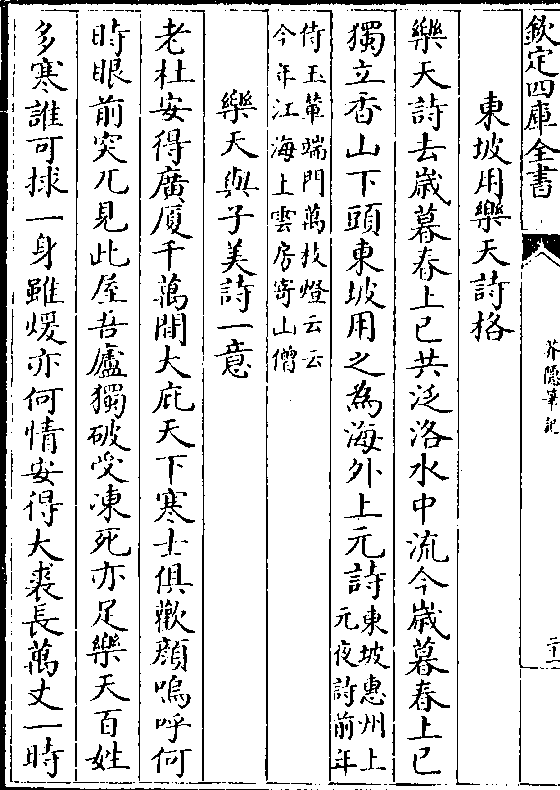 欽定四庫全書
芥隱筆記
二十一
東坡用樂天詩格
樂天詩去歲暮春上巳共泛洛水中流今歲暮春上巳
獨立香山下頭東坡用之為海外上元詩東坡惠州上
元夜詩前年
侍玉輦端門萬枝燈云云
今年江海上雲房寄山僧
樂天與子美詩一意
老杜安得廣厦千萬間大庇天下寒士俱歡顔嗚呼何
時眼前突兀見此屋吾廬獨破受凍死亦足樂天百姓
多寒誰可捄一身雖煖亦何情安得大裘長萬丈一時